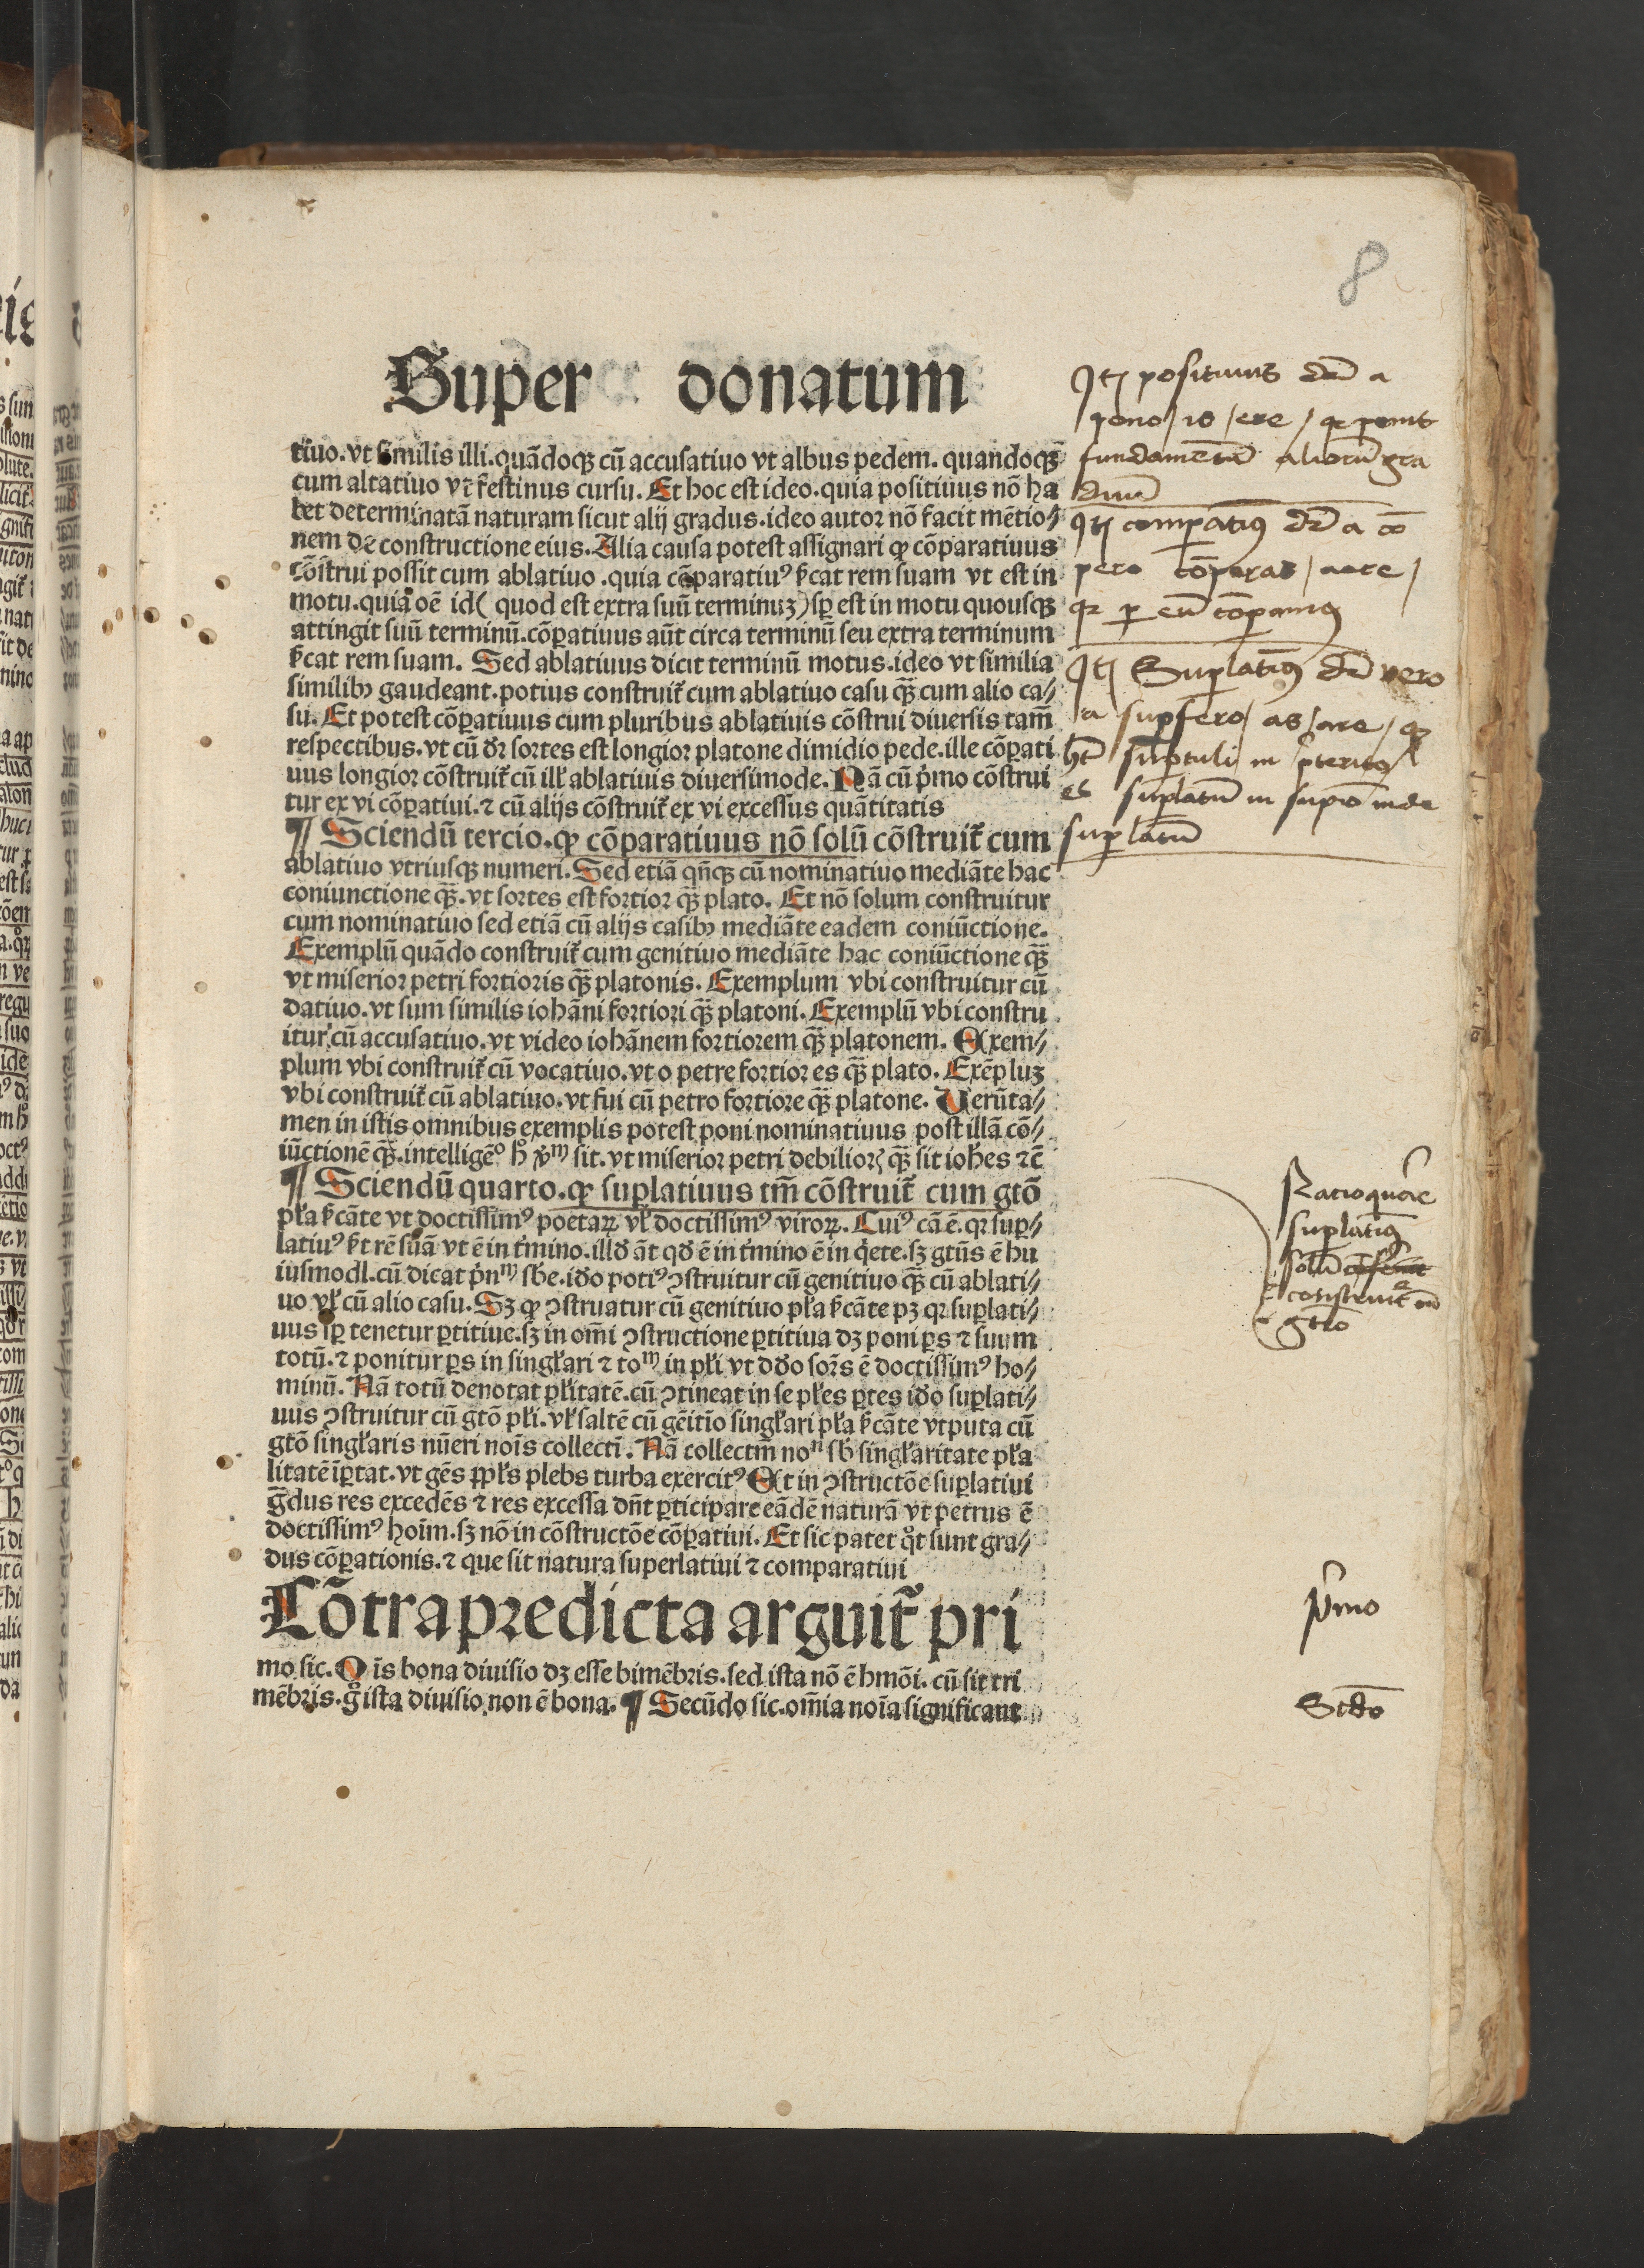 8
Super donatum
tiuo. vt similis illi. quãdoqꝫ cũ accusatiuo vt albus pedem. quandoqꝫ
cum ablatiuo vt festinus cursu. Et hoc est ideo. quia positiuus nõ ha
bet determinatã naturam sicut alij gradus. ideo autor nõ facit mẽtio⸗
nem de constructione eius. Alia causa potest assignari ꝙ cõparatiuus
cõstrui possit cum ablatiuo. quia cõparatiuꝰ ẜcat rem suam vt est in
motu. quia oẽ id( quod est extra suũ terminuꝫ) sꝑ est in motu quousqꝫ
attingit suũ terminũ. cõꝑatiuus aũt circa terminũ seu extra terminum
ẜcat rem suam. Sed ablatiuus dicit terminũ motus. ideo vt similia
similibꝰ gaudeant. potius construit᷑ cum ablatiuo casu qꝫ̃ cum alio ca⸗
su. Et potest cõꝑatiuus cum pluribus ablatiuis cõstrui diuersis tam̃
respectibus. vt cũ dr̃ sortes est longior platone dimidio pede. ille cõꝑati
uus longior cõstruit᷑ cũ ill' ablatiuis diuersimode. Nã cũ pͥmo cõstrui
tur ex vi cõꝑatiui. ⁊ cũ alijs cõstruit᷑ ex vi excessus quãtitatis
¶ Sciendũ tercio. ꝙ cõparatiuus nõ solũ cõstruit᷑ cum
ablatiuo vtriusqꝫ numeri. Sed etiã qñqꝫ cũ nominatiuo mediãte hac
coniunctione qꝫ̃. vt sortes est fortior qꝫ̃ plato. Et nõ solum construitur
cum nominatiuo sed etiã cũ alijs casibꝰ mediãte eadem coniũctione.
Exemplũ quãdo construit᷑ cum genitiuo mediãte hac coniũctione qꝫ̃
vt miserior petri fortioris qꝫ̃ platonis. Exemplum vbi construitur cũ
datiuo. vt sum similis iohãni fortiori qꝫ̃ platoni. Exemplũ vbi constru
itur cũ accusatiuo. vt video iohãnem fortiorem qꝫ̃ platonem. Exem⸗
plum vbi construit᷑ cũ vocatiuo. vt o petre fortior es qꝫ̃ plato. Exẽpluꝫ
vbi construit᷑ cũ ablatiuo. vt fui cũ petro fortiore qꝫ̃ platone. Verũta⸗
men in istis omnibus exemplis potest poni nominatiuus post illã cõ⸗
iũctionẽ qꝫ̃. intelligẽᵒ hͦ v̾bͫ sit. vt miserior petri debilior̃ qꝫ̃ sit ioh̃es ⁊c̃
¶ Sciendũ quarto. ꝙ suꝑlatiuus tm̃ cõstruit᷑ cum gtõ
pl'a ẜcãte vt doctissimꝰ poetaꝝ vl' doctissimꝰ viroꝝ. Cuiꝰ cã ẽ. qꝛ suꝑ⸗
latiuꝰ ẜt rẽ suã vt ẽ in t'mino. illđ ãt qđ ẽ in t'mino ẽ in qͥete. sꝫ gtũs ẽ hu
iusmodi. cũ dicat pͥnᵐ sb̃e. iđo potiꝰ ꝯstruitur cũ genitiuo qꝫ̃ cũ ablati⸗
uo vl' cũ alio casu. Sꝫ ꝙ ꝯstruatur cũ genitiuo pl'a ẜcãte pꝫ qꝛ suꝑlati⸗
uus sꝑ tenetur ꝑtitiue. sꝫ in om̃i ꝯstructione ꝑtitiua dꝫ poni ꝑs ⁊ suum
totũ. ⁊ ponitur ꝑs in singl'ari ⁊ toᵐ in pl'i vt dđo sor̃s ẽ doctissimꝰ ho⸗
minũ. Nã totũ denotat pl'itatẽ. cũ ꝯtineat in se pl'es ꝑtes iđo suꝑlati⸗
uus ꝯstruitur cũ gtõ pl'i. vl' saltẽ cũ gẽitĩo singl'ari pl'a ẜcãte vtputa cũ
gtõ singl'aris nũeri noĩs collectĩ. Nã collectm̃ noⁿ sb̃ singl'aritate pl'a
litatẽ ĩꝑtat. vt gẽs ꝓpl's plebs turba exercitꝰ Et in ꝯstructõe suꝑlatiui
g̃dus res excedẽs ⁊ res excessa dñt ꝑticipare eãdẽ naturã vt petrus ẽ
doctissimꝰ hoĩm. sꝫ nõ in cõstructõe cõꝑatiui. Et sic patet qͦt sunt gra⸗
dus cõꝑationis. ⁊ que sit natura superlatiui ⁊ comparatiui
Cõtra predicta arguit᷑ pri
mo sic. Oĩs bona diuisio dꝫ esse bimẽbris. sed ista nõ ẽ hmõi. cũ sit tri
mẽbris. gͦ ista diuisio non ẽ bona. ¶ Secũdo sic. om̃ia noĩa significant
Itꝫ positiuus dr̃ a
pono / is / ere / qꝛ ponit
fundamentũ aliorũ gra
duũ
Itꝫ compatiꝰ dr̃ a cõ
pero cõperas / aare /
qꝛ ꝑ eũ cõꝑamꝰ
Itꝫ Suꝑlatiꝰ dr̃ vero
a suꝑfero / as / are / qꝛ
hꝫ suꝑtuli in ꝑterito
et suꝑlatũ in supiõ inde
suꝑlatũ
Ratio quare
suꝑlatiꝰ
solũ
construit᷑ cũ
gtõ
pͥmo
Scđo